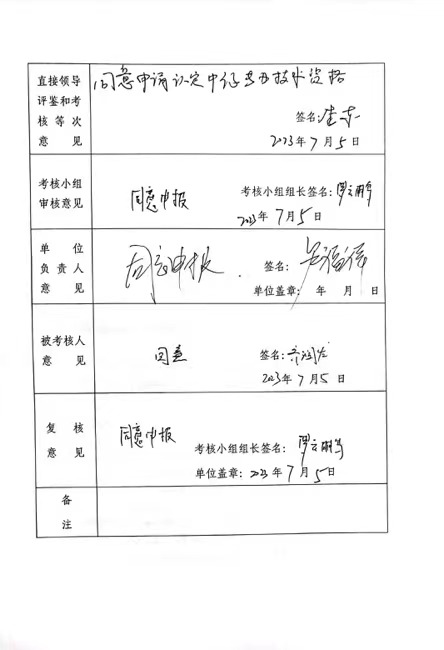 直接领导
评鉴和考
核等次
意见
同意申请认定中级专业技术资格
签名:
2023年7月5日
考核小组
审核意见
同意申报
考核小组组长签名:
2023年7月5日
单位
负责人
意见
同意申报.
签名:
单位盖章: 年 月 日
被考核人
意见
同意
签名:
2023年7月5日
复核
意见
同意申报
考核小组组长签名:
单位盖章:2023年7月5日
备
注